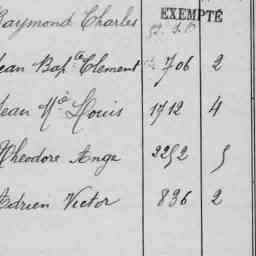 Raymond Charles EXEMPTÉ
Jean Bapte Clement 706 2
Jean Mie Louis 1712 4
Théodore Ange 2252 5
Adrien Victor 836 2